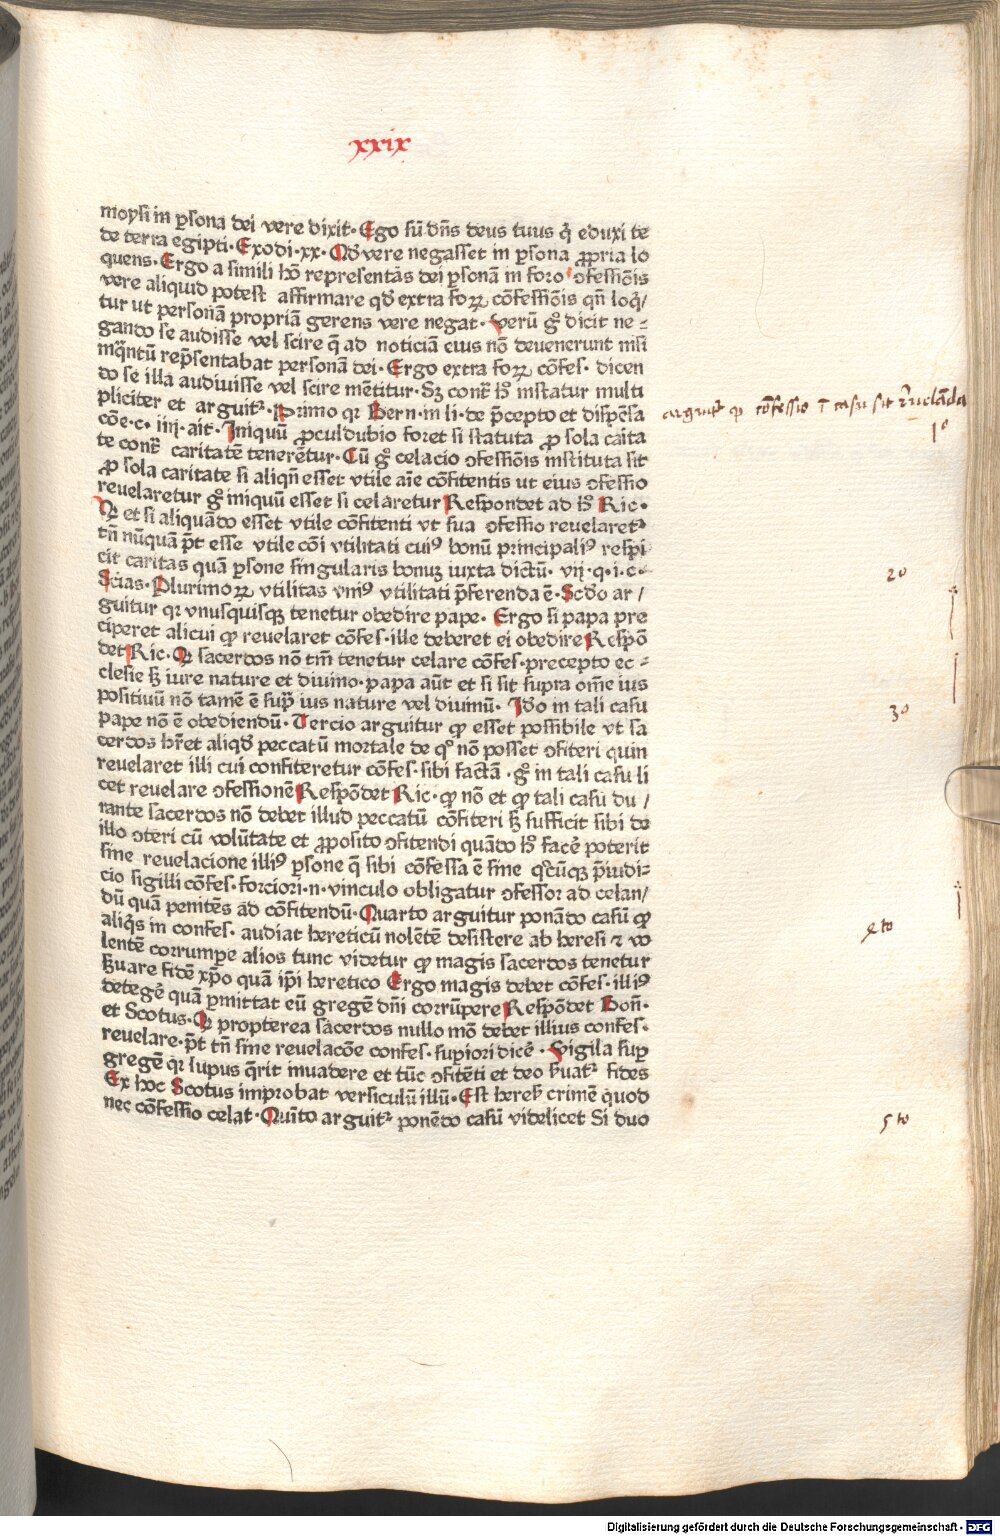 xxix
moysi in ꝑsona dei vere dixit· Ego sū dn̄s deus tuus q̇ eduxi te
de terra egipti· Exodi·xx· Qd̕ vere negasset in ꝑsona ꝓpria lo
quens· Ergo a simili hō representās dei ꝑsonā in foro ꝯfessiōis
vere aliquid potest affirmare qd̕ extra foꝝ cōfessiōis qn̄ loq̇/
tur ut personā propriā gerens vere negat· verū gͦ dicit ne-
gando se audisse vel scire q̄ ad noticiā eius nō deuenerunt nisi
inq̄ntū rep̄sentabat personā dei· Ergo extra foꝝ cōfes· dicen
do se illa audiuisse vel scire mētitur· Sꝫ contᷓ hͦ instatur multi
pliciter et arguitᷣ· Primo qꝛ Bern·in li·de p̄cepto et dispēsa
cōe·c· iiij·ait· Iniquū ꝓculdubio foret si statuta ꝓ sola caīta
te contᷓ caritatē tenerētur· Cū gͦ celacio ꝯfessiōis instituta sit
ꝓ sola caritate si aliqn̄ esset vtile aīe cōfitentis ut eius ꝯfessio
reuelaretur gͦ iniquū esset si celaretur Respondet ad hͦ Ric·
Qꝛ et si aliquādo esset vtile cōfitenti vt sua ꝯfessio reuelaretᷣ
tn̄ nūquā pt̄ esse vtile cōi vtilitati cuiꝰ bonū principaliꝰ respi
cit caritas quā ꝑsone singularis bonuꝫ iuxta dictū· vij·q·i·c·
Scias· Plurimoꝝ vtilitas vniꝰ vtilitati p̄ferenda ē· Scd̕o ar/
guitur qꝛ vnusquisqꝫ tenetur obedire pape· Ergo si papa pre
ciperet alicui ꝙ reuelaret cōfes·ille deberet ei obedire Respō
det Ric· Qꝛ sacerdos nō tm̄ tenetur celare cōfes·precepto ec-
clesie sꝫ iure nature et diuino·papa aūt et si sit supra om̄e ius
positiuū nō tamē ē supᷓ ius nature vel diuinū· Id̕o in tali casu
pape nō ē obediendū· Tercio arguitur ꝙ esset possibile vt sa
cerdos hr̄et aliqd̕ peccatū mortale de qͦ nō posset ꝯfiteri quin
reuelaret illi cui confiteretur cōfes·sibi factā ·gͦ in tali casu li
cet reuelare ꝯfessionē Respōdet Ric·ꝙ nō et ꝙ tali casu du /
rante sacerdos nō debet illud peccatū cōfiteri sꝫ sufficit sibi de
illo ꝯteri cū volūtate et ꝓposito ꝯfitendi quādo hͦ facē poterit
sine reuelacione illiꝰ ꝑsone q̄ sibi cōfessa ē sine qᷓcūqꝫ p̄iudi-
cio sigilli cōfes·forciori·n·vinculo obligatur ꝯfessor ad celan/
dū quā penitēs ad cōfitendū· Quarto arguitur ponādo casū ꝙ
aliq̇s in confes· audiat hereticū nolētē desistere ab heresi ⁊ vo
lentē corrumpe alios tunc videtur ꝙ magis sacerdos tenetur
ẜuare fidē xp̄o quā ip̄i heretico Ergo magis debet cōfes·illiꝰ
detegē quā ꝑmittat eū gregē dn̄i corrūpere Respōdet Bon̄·
et Scotus· Qꝛ propterea sacerdos nullo mō debet illius confes·
reuelare·pt̄ tn̄ sine reuelacōe confes·supiori dicē· Vigila suꝑ
gregē qꝛ lupus q̄rit inuadere et tūc ꝯfitēti et deo ẜuatᷣ fides
Ex hoc Scotus improbat versiculū illū· Est heres̕ crimē quod
nec cōfessio celat· Quīto arguitᷣ ponēdo casū videlicet Si duo
arguitᷣ ꝙ cōfessio ī casu sit reuelāda
1º
2º
3º
4to
5to
Digitalisierung gefördert durch die Deutsche Forschungsgemeinschaft - DFG